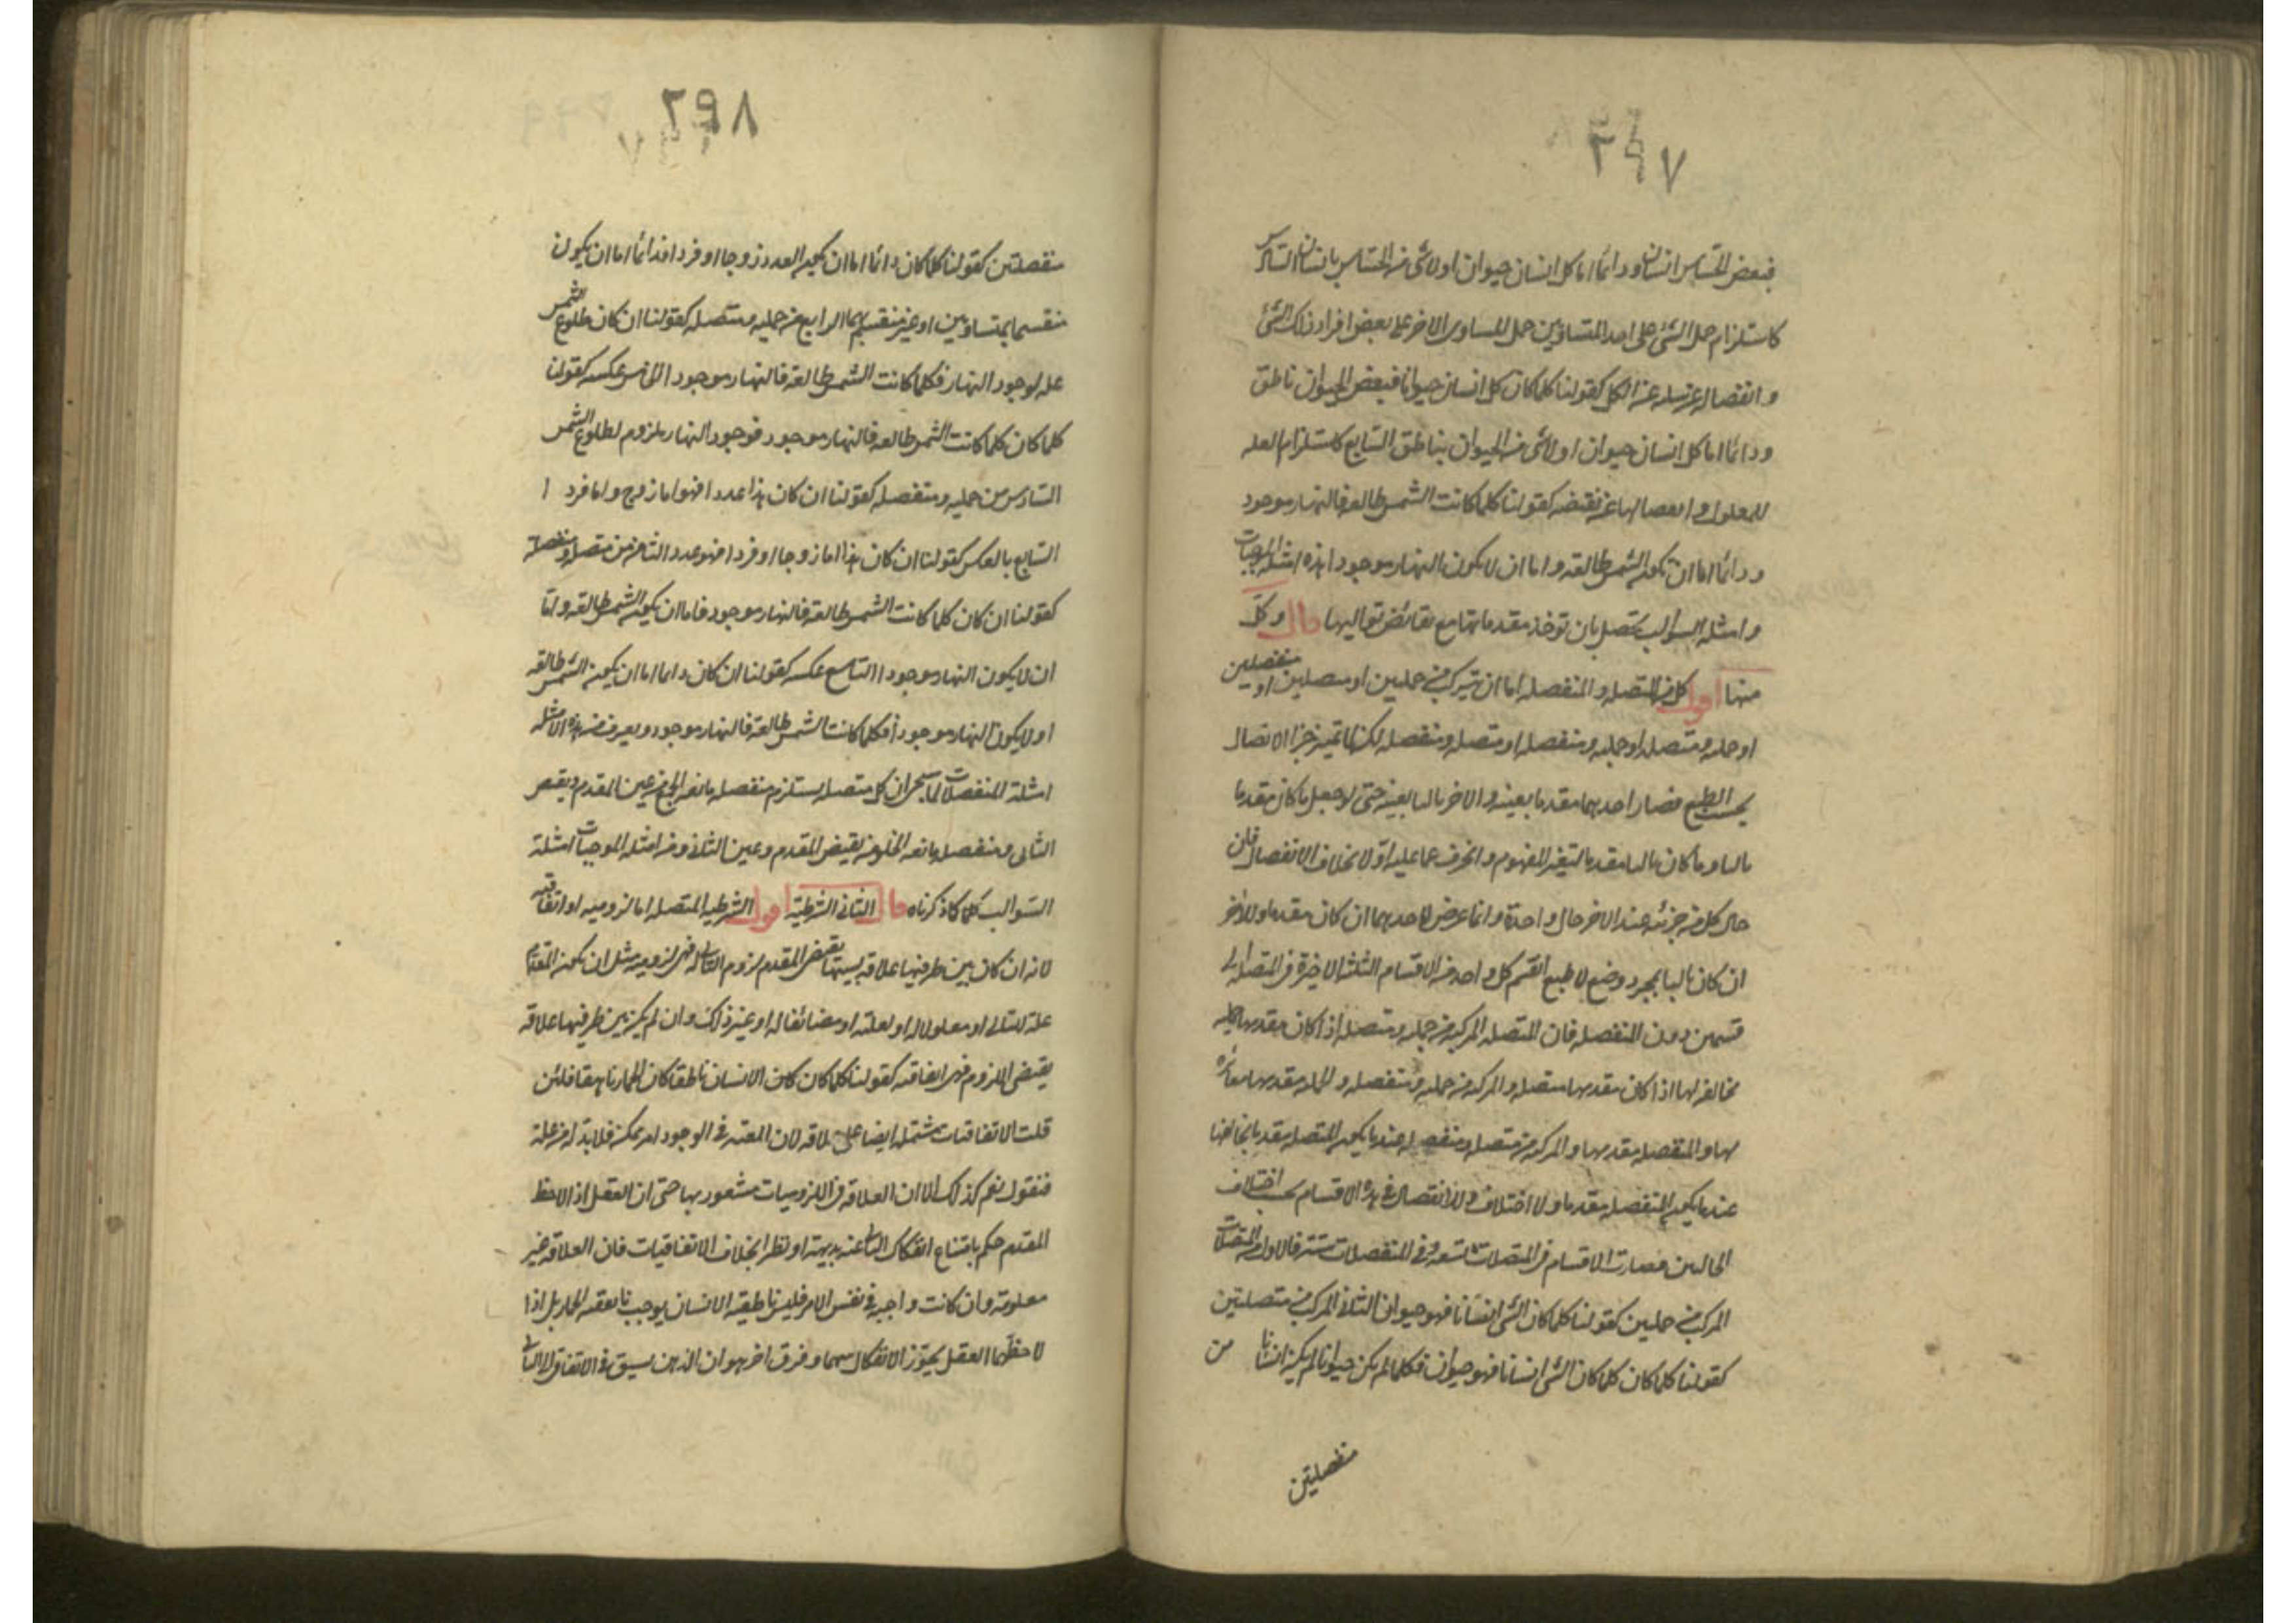 ٢٩٧
فبعض الحساس انسان ودائما اما كل انسان حيوان او لا شئ من الحساس بانسان السادس
كاستلزام حمل الشئ على احد المتساويين حمل المساوى الاخر على بعض افراد ذلك الشئ
وانفصاله عن سلبه عن الكل كقولنا كلما كان كل انسان حيوانا فبعض الحيوان ناطق
ودائما اما كل انسان حيوان او لا شئ من الحيوان بناطق السابع كاستلزام العله
للمعلول وانفصالها عن نقيضه كقولنا كلما كانت الشمس طالعه فالنهار موجود
ودائما اما ان تكون الشمس طالعه واما ان لا يكون النهار موجودا هذه امثلة الموجبات
وامثله السوالب تحصل بان توخذ مقدماتها مع نقائض تواليها قال وكل
منها اقول كل من المتصله والمنفصله اما ان تتركب من حمليتين او متصلتين او منفصلتين
او حمليه ومتصله او حمليه ومنفصله او متصله ومنفصله لكن لما تميز جزءا الاتصال
بحسب الطبع فصار احدهما مقدما بعينه والاخر تاليا بعينه حتى لو جعل ما كان مقدما
تاليا وما كان تاليا مقدما لتغير المفهوم وانحرف عما عليه اولا بخلاف الانفصال فان
حال كل من جزئيه عند الاخر حال واحدة وانما عرض لاحدهما ان كان مقدما وللاخر
ان كان تاليا بمجرد وضع لا طبع انقسم كل واحد من الاقسام الثلثه الاخيرة فى المتصله الى
قسمين دون المنفصله فان المتصله المركبه من حمليه ومتصله اذا كان مقدمها حمليه
مخالفه لها اذا كان مقدمها متصله والمركبه من حمليه ومنفصله والحمليه مقدمها مغائره
لها والمنفصله مقدمها والمركبه من متصله ومنفصله عندما يكون المتصله مقدما يخالفها
عندما يكون المنفصله مقدما ولا اختلاف فى الانفصال فى هذه الاقسام بحسب اختلاف
الحالين فصارت الاقسام فى المتصلات تسعه وفى المنفصلات ستة فالاول من المتصلات
المركب من حمليتين كقولنا كلما كان الشئ انسانا فهو حيوان الثانى المركب من متصلتين
كقولنا كلما كان كلما كان الشئ انسانا فهو حيوان فكلما لم يكن حيوانا لم يكن انسانا من
منفصلتين
٢٩٨
منفصلتين كقولنا كلما كان دائما اما ان يكون العدد زوجا او فردا فدائما اما ان يكون
منقسما بمتساويين او غير منقسم بهما الرابع من حمليه ومتصله كقولنا ان كان طلوع الشمس
علة لوجود النهار فكلما كانت الشمس طالعه فالنهار موجود الخامس عكسه كقولنا
كلما كان كلما كانت الشمس طالعه فالنهار موجود فوجود النهار ملزوم لطلوع الشمس
السادس من حمليه ومنفصله كقولنا ان كان هذا عددا فهو اما زوج واما فرد ا
السابع بالعكس كقولنا ان كان هذا اما زوجا او فردا فهو عدد الثامن من متصله ومنفصلة
كقولنا ان كان كلما كانت الشمس طالعه فالنهار موجود فاما ان يكون الشمس طالعه واما
ان لا يكون النهار موجودا التاسع عكسه كقولنا ان كان دائما اما ان يكون الشمس طالعه
او لا يكون النهار موجودا فكلما كانت الشمس طالعه فالنهار موجود ويعرف من هذه الامثله
امثلة المنفصلات لما سيجئ ان كل متصله يستلزم منفصله مانعه الجمع من عين المقدم ونقيض
التالى ومنفصله مانعه الخلو من نقيض المقدم وعين التالى ومن امثله الموجبات امثلة
السوالب كلها كما ذكرناه قال الثانى الشرطية اقول الشرطيه المتصله اما لزوميه او اتفاقيه
لانه ان كان بين طرفيها علاقه بسببها يقتضى المقدم لزوم التالى له فهى لزوميه مثل ان يكون المقدم
علة للتالى او معلولا له او لعلته او مضائفا له او غير ذلك وان لم يكن بين طرفيها علاقه
يقتضى اللزوم فهى اتفاقيه كقولنا كلما كان الانسان ناطقا كان الحمار ناهقا فلئن
قلت الاتفاقيات مشتمله ايضا على علاقه لان المعيه فى الوجود امر ممكن فلا بد له من علة
فنقول نعم كذلك الا ان العلاقه فى اللزوميات مشعور بها حتى ان العقل اذا لاحظ
المقدم حكم بامتناع انفكاك التالى عنه بديهة او نظرا بخلاف الاتفاقيات فان العلاقه غير
معلومه وان كانت واجبه فى نفس الامر فليس ناطقيه الانسان يوجب ناهقيه الحمار بل اذا
لاحظهما العقل يجوز الانفكاك بينهما وفرق اخر هو ان الذهن يسبق فى الاتفاق الى التالى